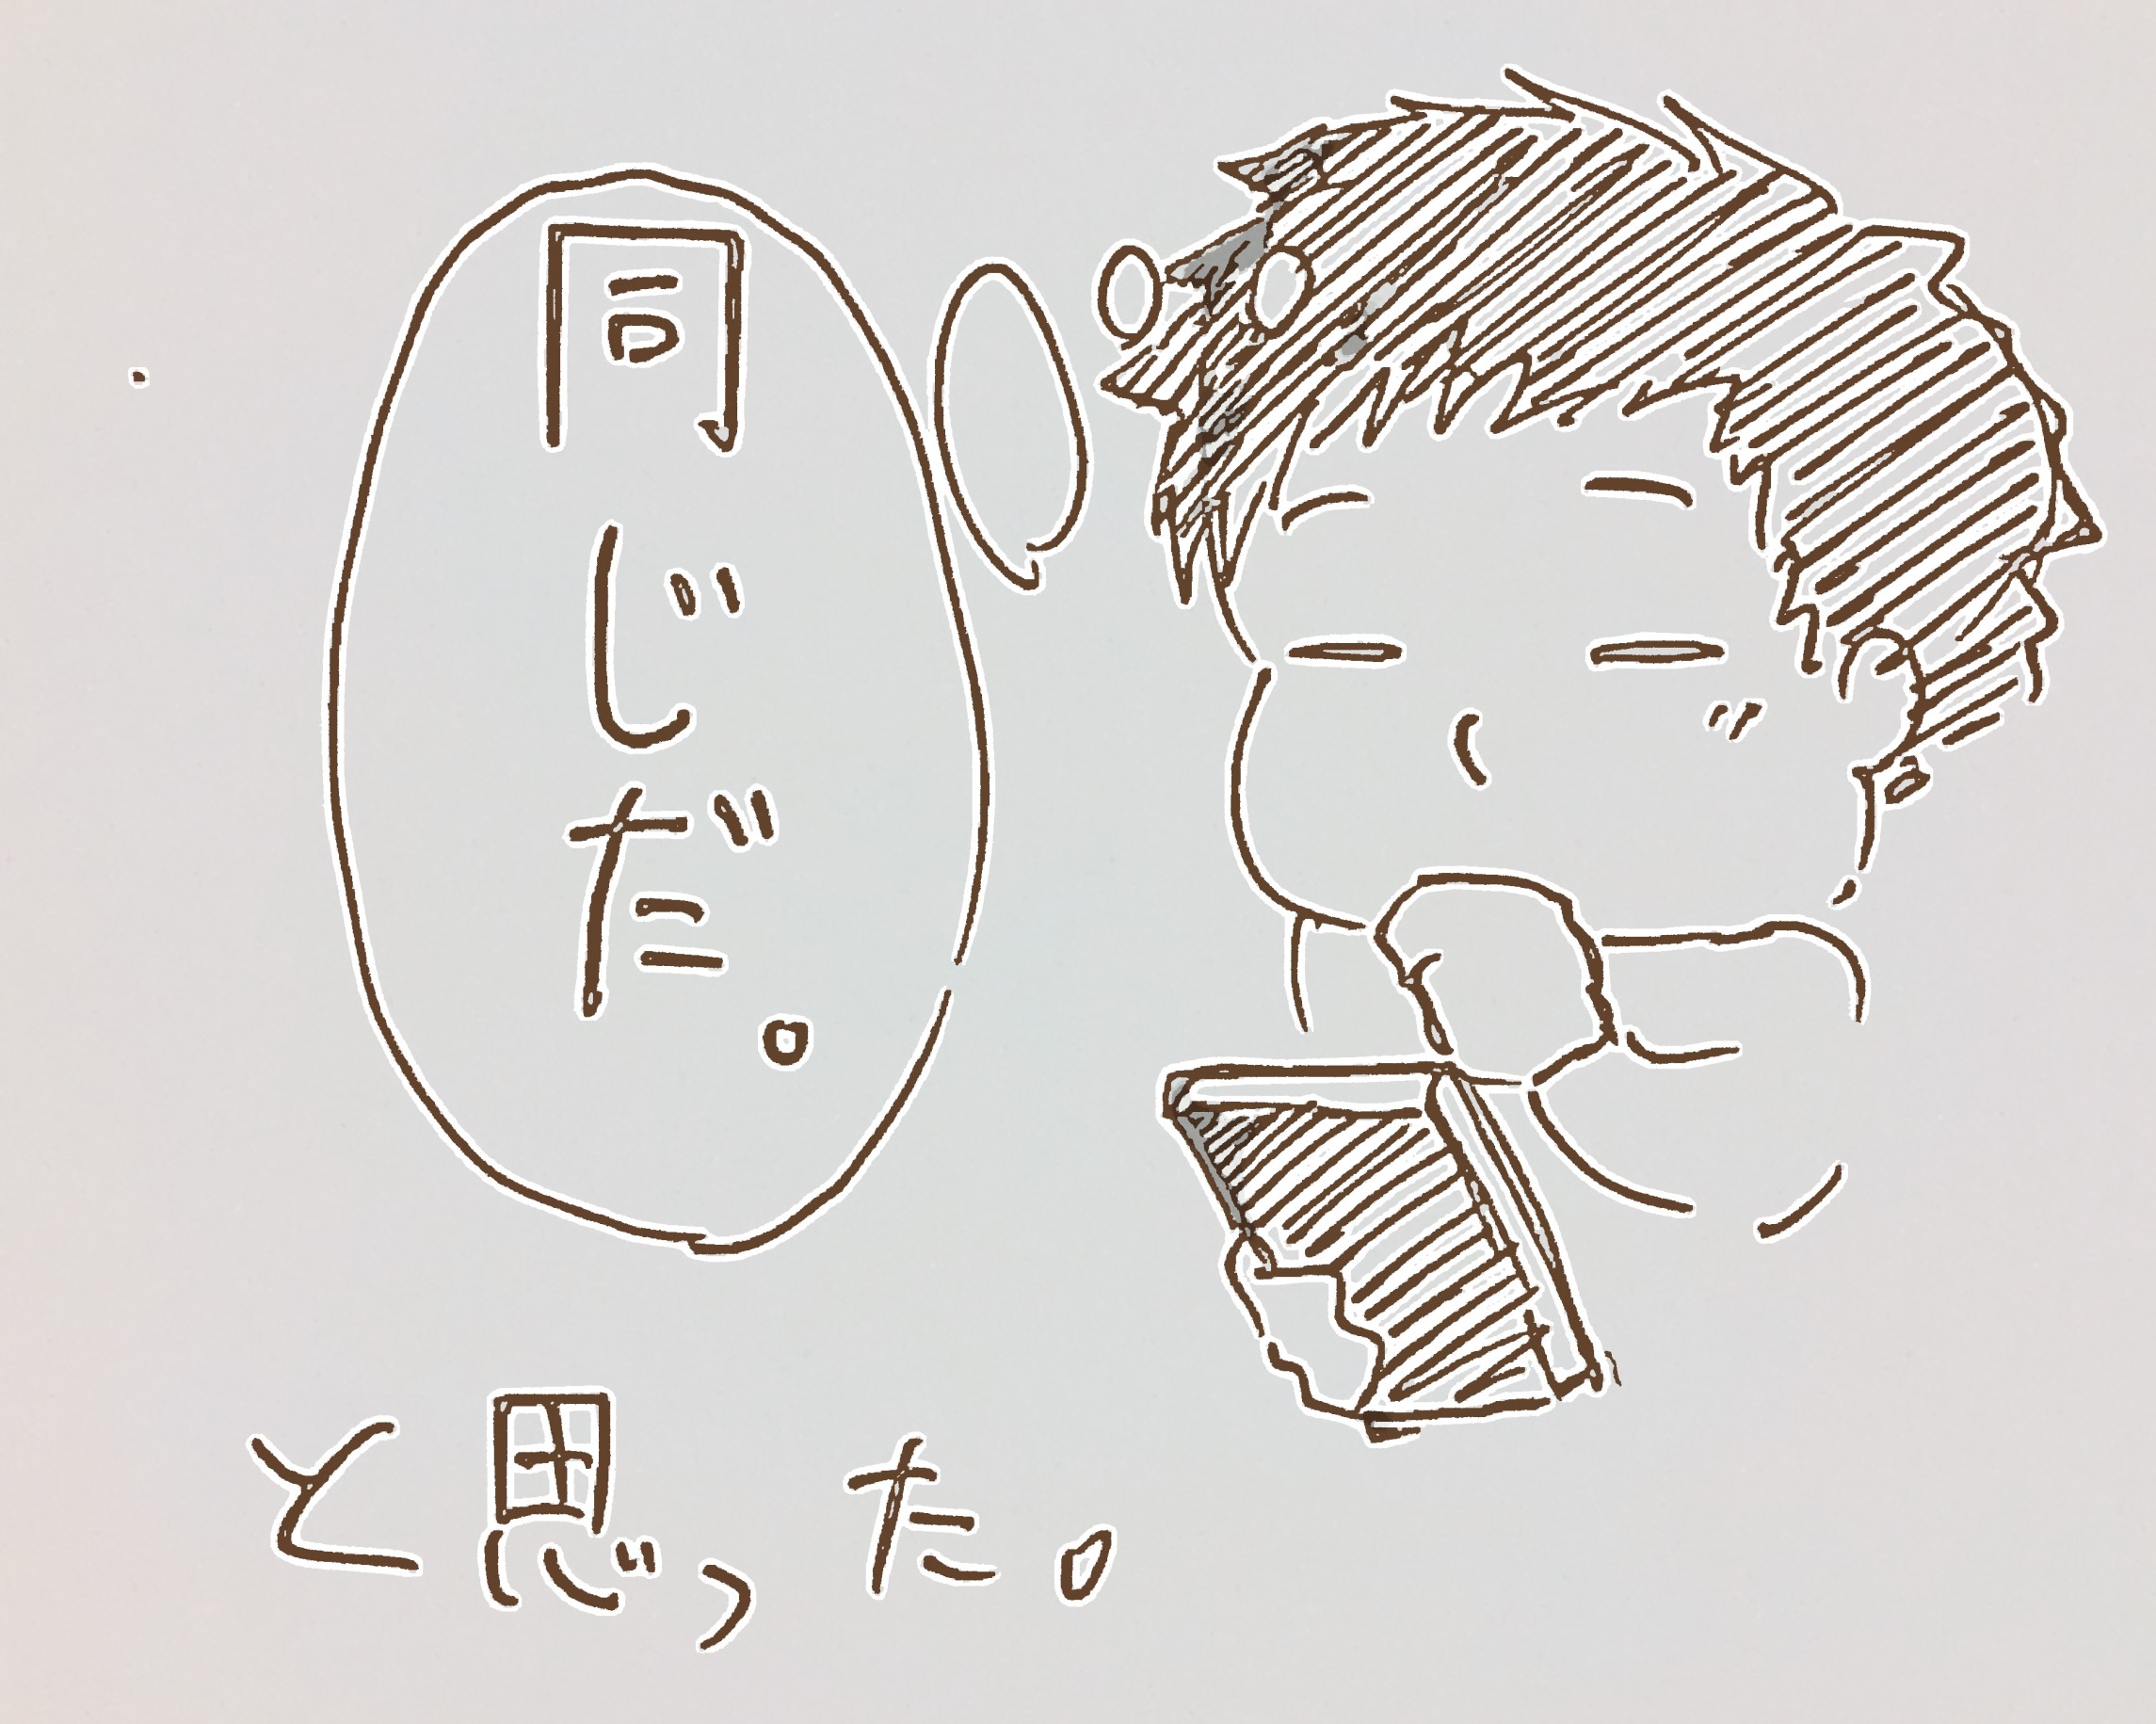 同じだ。
と思った。